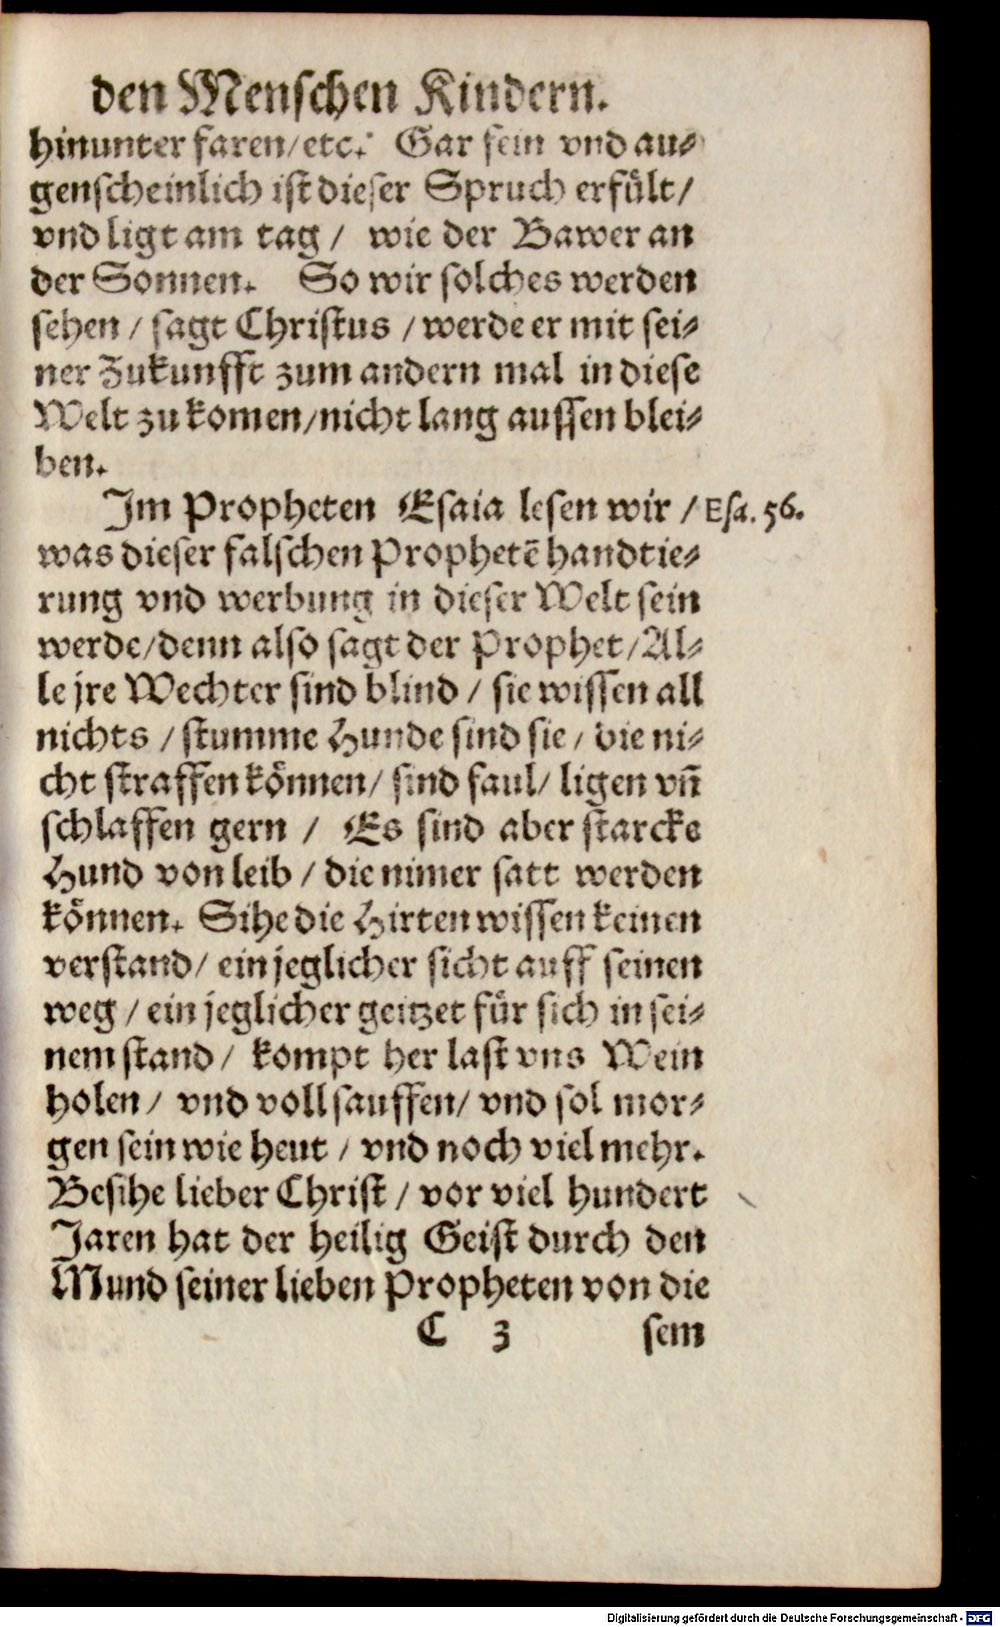 den Menschen Kindern.
hinunter faren/etc. Gar fein vnd au⸗
genscheinlich ist dieser Spruch erfuͤlt/
vnd ligt am tag / wie der Bawer an
der Sonnen. So wir solches werden
sehen / sagt Christus / werde er mit sei⸗
ner Zukunfft zum andern mal in diese
Welt zu komen/nicht lang aussen blei⸗
ben.
Im Propheten Esaia lesen wir / Esa. 56.
was dieser falschen Prophetē handtie⸗
rung vnd werbung in dieser Welt sein
werde/denn also sagt der Prophet/Al⸗
le jre Wechter sind blind / sie wissen all
nichts / stumme Hunde sind sie / die ni⸗
cht straffen koͤnnen/ sind faul/ ligen vn̄
schlaffen gern / Es sind aber starcke
Hund von leib / die nimer satt werden
koͤnnen. Sihe die Hirten wissen keinen
verstand/ ein jeglicher sicht auff seinen
weg / ein jeglicher geitzet fuͤr sich in sei⸗
nem stand/ kompt her last vns Wein
holen/ vnd voll sauffen/ vnd sol mor⸗
gen sein wie heut / vnd noch viel mehr.
Besihe lieber Christ / vor viel hundert
Jaren hat der heilig Geist durch den
Mund seiner lieben Propheten von die
C 3 sem
Digitalisierung gefördert durch die Deutsche Forschungsgemeinschaft - DFG